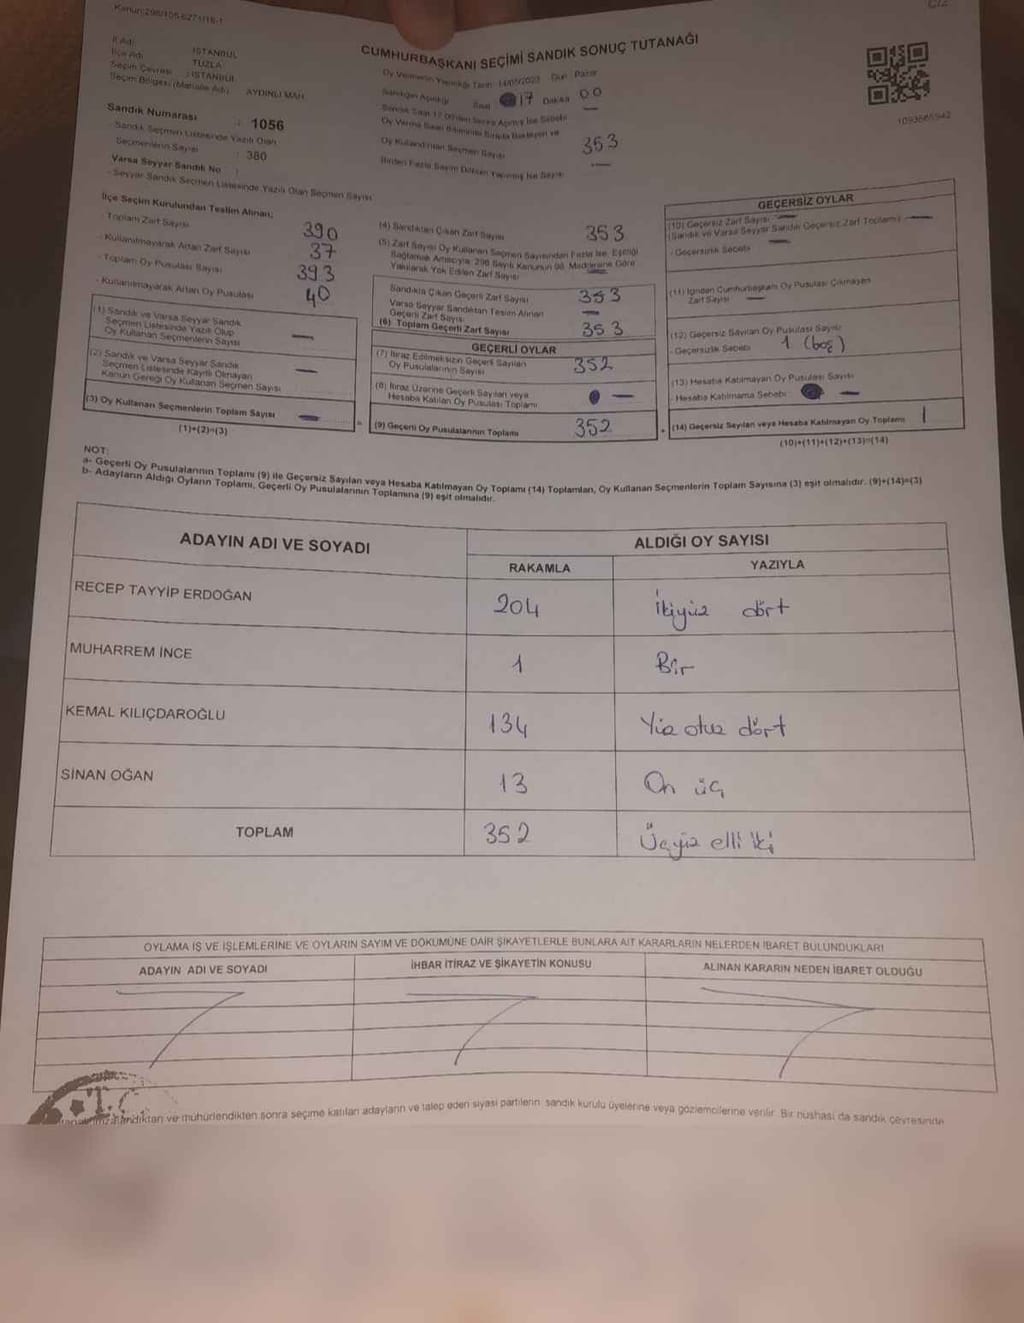 Kanun:298/105-6271/16-1
İl Adı : İSTANBUL
İlçe Adı : TUZLA
Seçim Çevresi : İSTANBUL
Seçim Bölgesi (Mahalle Adı) : AYDINLI MAH.
Sandık Numarası : 1056
Sandık Seçmen Listesinde Yazılı Olan
Seçmenlerin Sayısı : 380
Varsa Seyyar Sandık No :
- Seyyar Sandık Seçmen Listesinde Yazılı Olan Seçmen Sayısı
CUMHURBAŞKANI SEÇİMİ SANDIK SONUÇ TUTANAĞI
Oy Vermenin Yapıldığı Tarih: 14/05/2023 Gün: Pazar
Sandığın Açıldığı Saat 17 Dakika 00
Oy Kullandırılan Seçmen Sayısı 353
Birden Fazla Sayım Döküm Yapılmış İse Sayısı —
1093665942
İlçe Seçim Kurulundan Teslim Alınan;
- Toplam Zarf Sayısı 390
- Kullanılmayarak Artan Zarf Sayısı 37
- Toplam Oy Pusulası Sayısı 393
- Kullanılmayarak Artan Oy Pusulası 40
(1) Sandık ve Varsa Seyyar Sandık
Seçmen Listesinde Yazılı Olup
Oy Kullanan Seçmenlerin Sayısı —
(2) Sandık ve Varsa Seyyar Sandık
Seçmen Listesinde Kayıtlı Olmayan
Kanun Gereği Oy Kullanan Seçmen Sayısı —
(3) Oy Kullanan Seçmenlerin Toplam Sayısı —
(1)+(2)=(3)
(4) Sandıktan Çıkan Zarf Sayısı 353
(5) Zarf Sayısı Oy Kullanan Seçmen Sayısından Fazla İse, Eşitliği
Sağlamak Amacıyla; 298 Sayılı Kanunun 98. Maddesine Göre
Yakılarak Yok Edilen Zarf Sayısı —
Sandıkta Çıkan Geçerli Zarf Sayısı 353
Varsa Seyyar Sandıktan Teslim Alınan
Geçerli Zarf Sayısı —
(6) Toplam Geçerli Zarf Sayısı 353
GEÇERLİ OYLAR
(7) İtiraz Edilmeksizin Geçerli Sayılan
Oy Pusulalarının Sayısı 352
(8) İtiraz Üzerine Geçerli Sayılan veya
Hesaba Katılan Oy Pusulası Toplamı —
(9) Geçerli Oy Pusulalarının Toplamı 352
GEÇERSİZ OYLAR
(10) Geçersiz Zarf Sayısı —
(Sandık ve Varsa Seyyar Sandık Geçersiz Zarf Toplamı) —
- Geçersizlik Sebebi —
(11) İçinden Cumhurbaşkanı Oy Pusulası Çıkmayan
Zarf Sayısı —
(12) Geçersiz Sayılan Oy Pusulası Sayısı
- Geçersizlik Sebebi 1 (boş)
(13) Hesaba Katılmayan Oy Pusulası Sayısı
- Hesaba Katılmama Sebebi —
(14) Geçersiz Sayılan veya Hesaba Katılmayan Oy Toplamı 1
(10)+(11)+(12)+(13)=(14)
NOT:
a- Geçerli Oy Pusulalarının Toplamı (9) ile Geçersiz Sayılan veya Hesaba Katılmayan Oy Toplamı (14) Toplamları, Oy Kullanan Seçmenlerin Toplam Sayısına (3) eşit olmalıdır. (9)+(14)=(3)
b- Adayların Aldığı Oyların Toplamı, Geçerli Oy Pusulalarının Toplamına (9) eşit olmalıdır.
ADAYIN ADI VE SOYADI ALDIĞI OY SAYISI
RAKAMLA YAZIYLA
RECEP TAYYİP ERDOĞAN 204 İkiyüz dört
MUHARREM İNCE 1 Bir
KEMAL KILIÇDAROĞLU 134 Yüz otuz dört
SİNAN OĞAN 13 On üç
TOPLAM 352 Üçyüz elli iki
OYLAMA İŞ VE İŞLEMLERİNE VE OYLARIN SAYIM VE DÖKÜMÜNE DAİR ŞİKAYETLERLE BUNLARA AİT KARARLARIN NELERDEN İBARET BULUNDUKLARI
ADAYIN ADI VE SOYADI İHBAR İTİRAZ VE ŞİKAYETİN KONUSU ALINAN KARARIN NEDEN İBARET OLDUĞU
T.C.
ve mühürlendikten sonra seçime katılan adayların ve talep eden siyasi partilerin sandık kurulu üyelerine veya gözlemcilerine verilir. Bir nüshası da sandık çevresinde